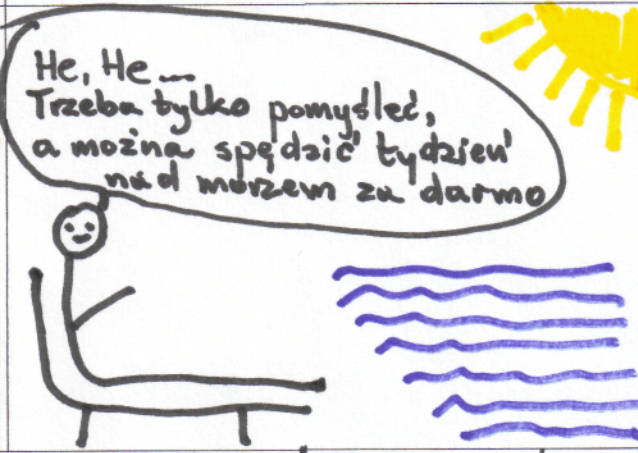 He, He...
Trzeba tylko pomyśleć,
a można spędzić tydzień
nad morzem za darmo